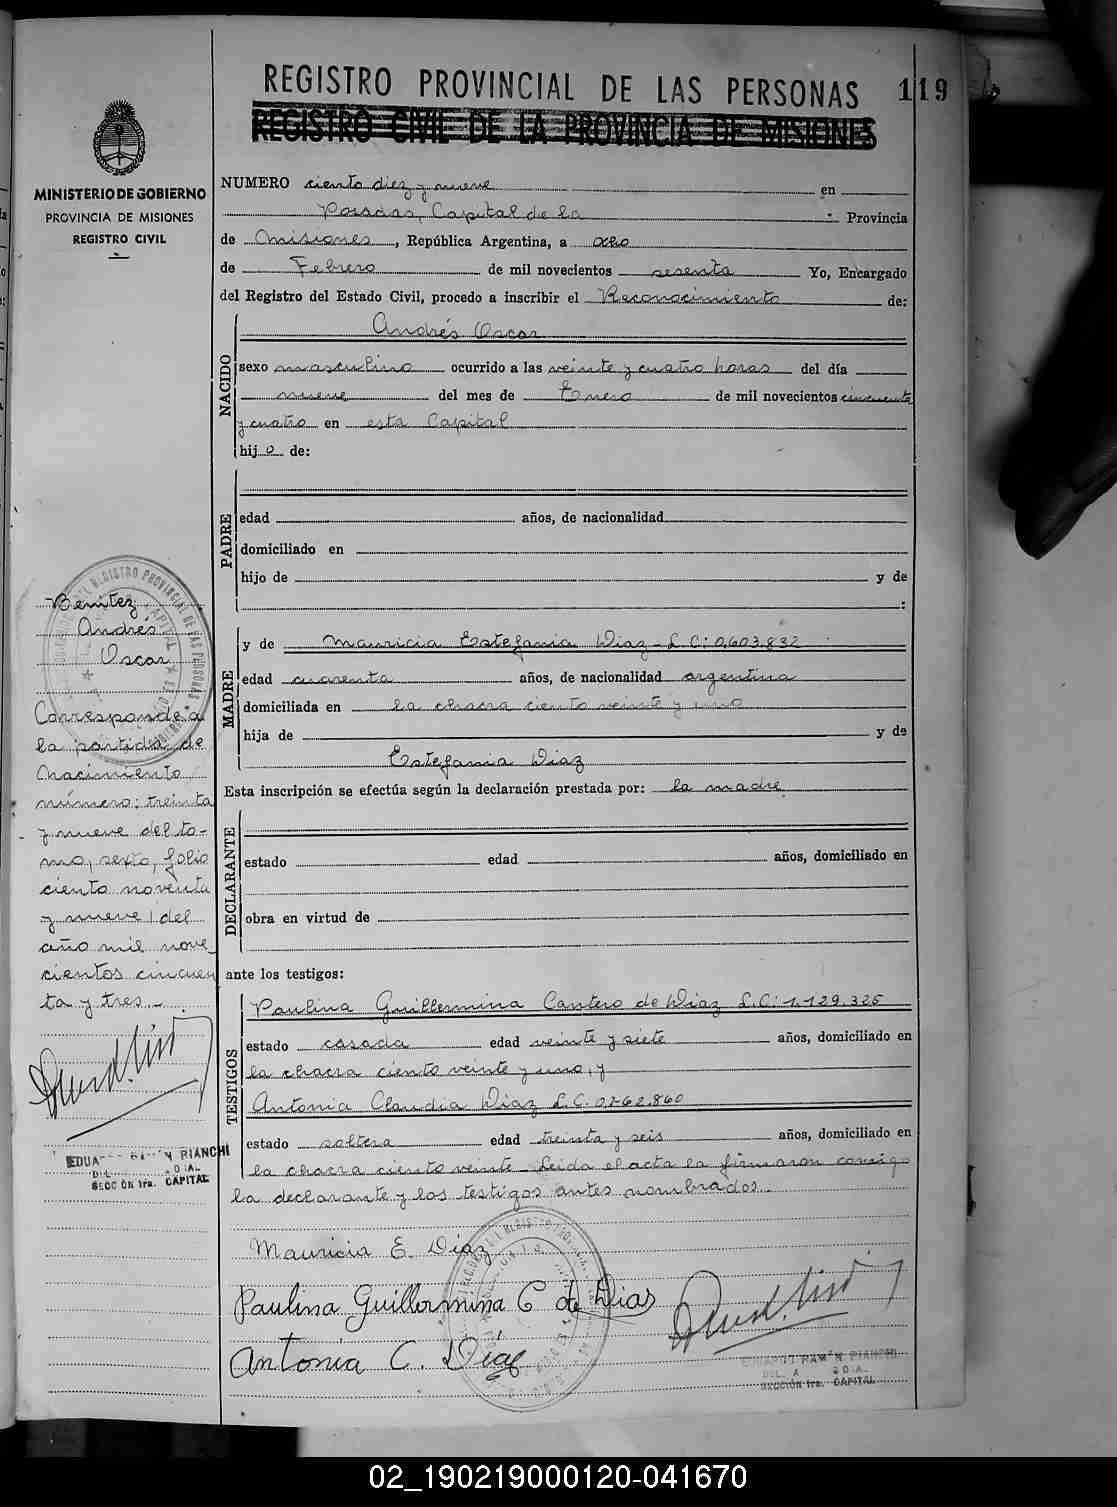 REGISTRO PROVINCIAL DE LAS PERSONAS 119
REGISTRO CIVIL DE LA PROVINCIA DE MISIONES
MINISTERIO DE GOBIERNO
PROVINCIA DE MISIONES
REGISTRO CIVIL
NUMERO ciento diez y nueve en
Posadas, Capital de la Provincia
de Misiones, República Argentina, a ocho
de Febrero de mil novecientos sesenta Yo, Encargado
del Registro del Estado Civil, procedo a inscribir el Reconocimiento de:
NACIDO
Andrés Oscar
sexo masculino ocurrido a las veinte y cuatro horas del día
nueve del mes de Enero de mil novecientos cincuenta
y cuatro en esta Capital
hijo de:
PADRE
edad años, de nacionalidad
domiciliado en
hijo de y de
:
MADRE
y de Mauricia Estefania Diaz - L.C: 0.603.832
edad cuarenta años, de nacionalidad argentina
domiciliada en la chacra ciento veinte y uno
hija de y de
Estefania Diaz
Esta inscripción se efectúa según la declaración prestada por: la madre
DECLARANTE
estado edad años, domiciliado en
obra en virtud de
ante los testigos:
TESTIGOS
Paulina Guillermina Cantero de Diaz L.C: 1.129.325
estado casada edad veinte y siete años, domiciliado en
la chacra ciento veinte y uno, y
Antonia Claudia Diaz L.C. 0.262.860
estado soltera edad treinta y seis años, domiciliado en
la chacra ciento veinte - Leida el acta la firmaron consigo
la declarante y los testigos antes nombrados.
Mauricia E. Díaz
Paulina Guillermina C de Dias
Antonia C. Díaz
EDUARDO RAMÓN PIANCHI
SECCIÓN 1ra. CAPITAL
Benitez
Andrés
Oscar
Corresponde a
la partida de
Nacimiento
número: treinta
y nueve del to-
mo, sexto, folio
ciento noventa
y nueve, del
año mil nove-
cientos cincuen
ta y tres.-
PIANCHI
SECCIÓN 1ra. CAPITAL
02_190219000120-041670